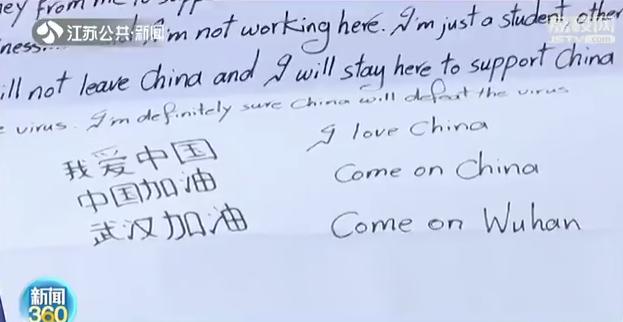 ney from me to supp
江苏公共·新闻
I'm not working here. I'm just a student other
ill not leave China and I will stay here to support China
e virus. I'm definitely sure China will defeat the virus
我爱中国
I love China
中国加油
Come on China
武汉加油
Come on Wuhan
新闻
360